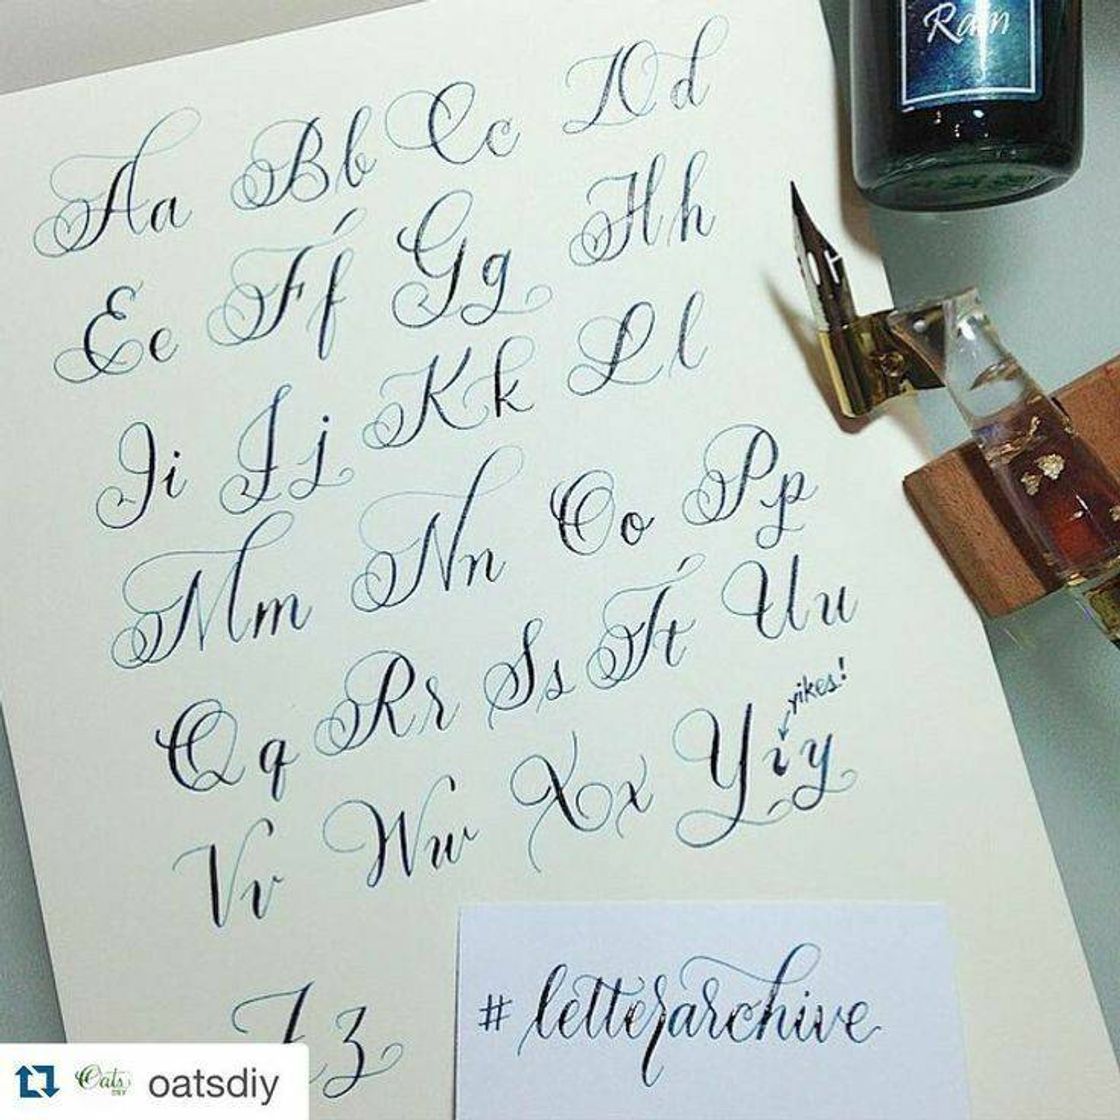 Rain
Aa Bb Cc Dd
Ee Ff Gg Hh
Ii Jj Kk Ll
Mm Nn Oo Pp
Qq Rr Ss Tt Uu
yikes!
Vv Ww Xx Yiy
Zz
#letterarchive
Oats DIY oatsdiy